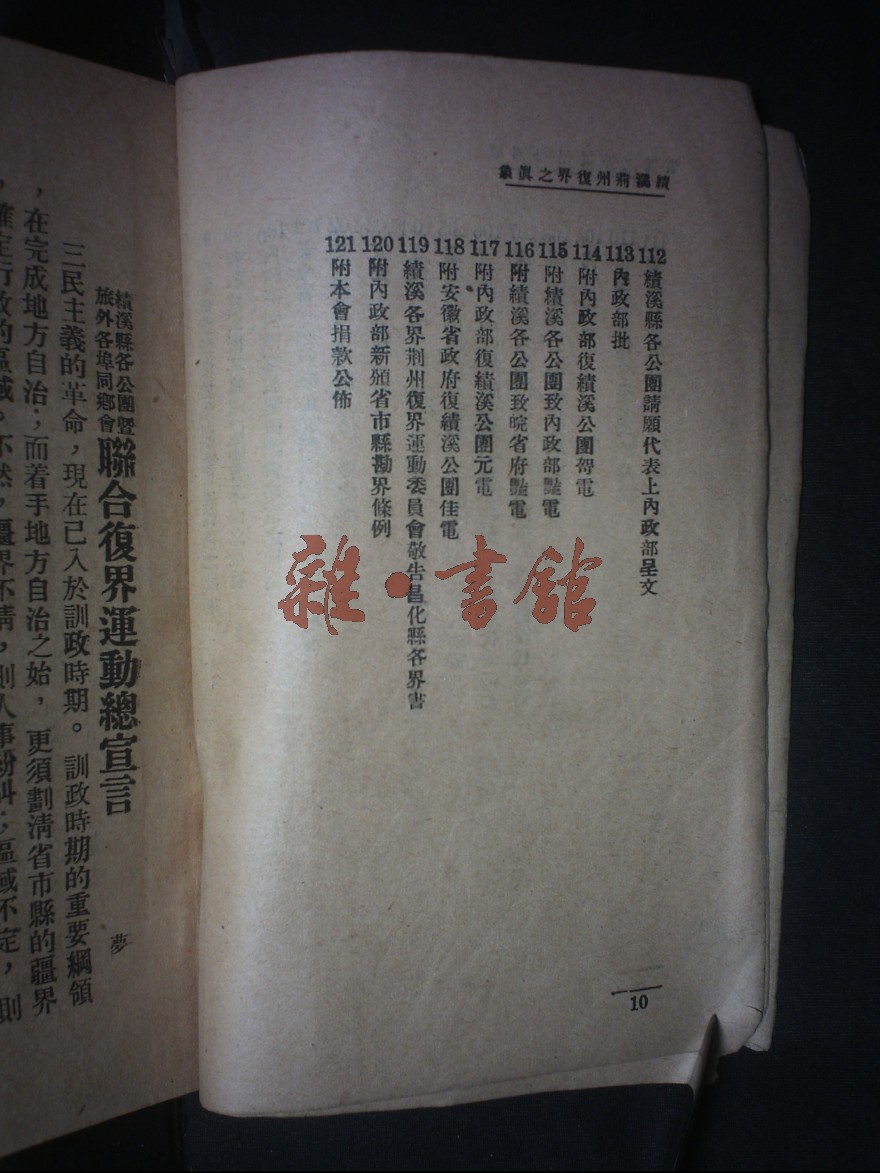 績溪荊州復界之真象
112 績溪縣各公團請願代表上內政部呈文
113 內政部批
114 附內政部復績溪公團哿電
115 附績溪各公團致內政部豔電
116 附績溪各公團致皖省府豔電
117 附內政部復績溪公團元電
118 附安徽省政府復績溪公團佳電
119 績溪各界荊州復界運動委員會敬告昌化縣各界書
120 附內政部新頒省市縣勘界條例
121 附本會捐款公佈
10
雜·書館
績溪縣各公團暨
旅外各埠同鄉會
聯合復界運動總宣言
夢
三民主義的革命，現在已入於訓政時期。訓政時期的重要綱領
，在完成地方自治；而着手地方自治之始，更須劃清省市縣的疆界
，確定行政的區域。不然，疆界不清，則人事糾紛；區域不定，則